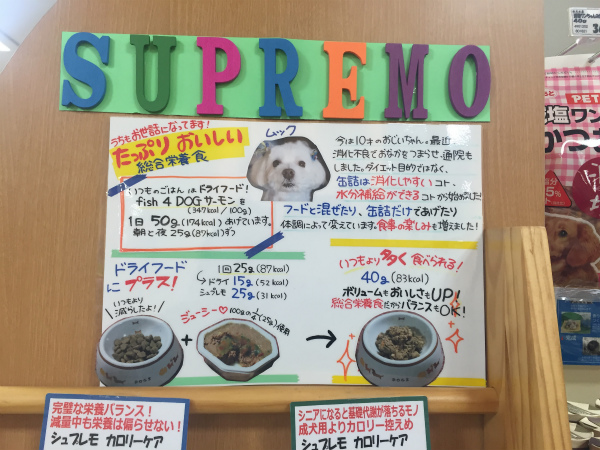 SUPREMO
うちもお世話になってます！
たっぷりおいしい
総合栄養食
ムック
今は10才のおじいちゃん。最近
消化不良でおなかをこわせ、通院も
しました。ダイエット目的ではなく、
缶詰は消化しやすいコト、
水分補給ができるコトから始めました！
フードと混ぜたり、缶詰だけであげたり
体調によって変えています。食事の楽しみも増えました！
いつものごはんはドライフード！
fish 4 DOG サーモンを
(347kcal/100g)
1日50g(174kcal)あげています。
朝と夜25g(87kcal)ずつ
ドライフード
にプラス！
1回25g(87kcal)
ドライ15g(52kcal)
シュプレモ25g(31kcal)
いつもより多く食べられる！
40g(83kcal)
ボリュームもおいしさもUP！
総合栄養食だからバランスもOK！
いつもより
減らしたよ！
ジューシー♡
100gの1/4(25g)使用
+
完璧な栄養バランス！
減量中も栄養は偏らせない！
シュプレモ カロリーケア
シニアになると基礎代謝が落ちるモノ
成犬用よりカロリー控えめ
シュプレモ カロリーケア
PET
塩ワン
かつ